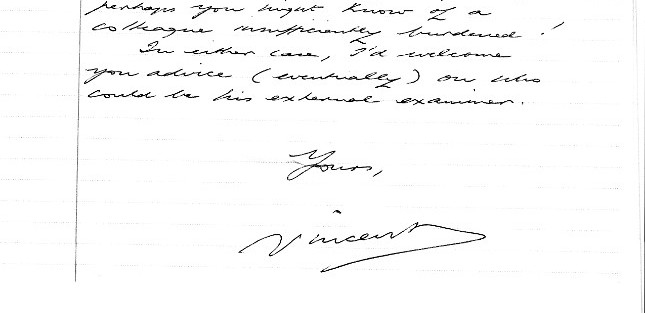 perhaps you might know of a
colleague insufficiently burdened!
In either case, I'd welcome
you advice (eventually) on who
could be his external examiner.
Yours,
Vincent